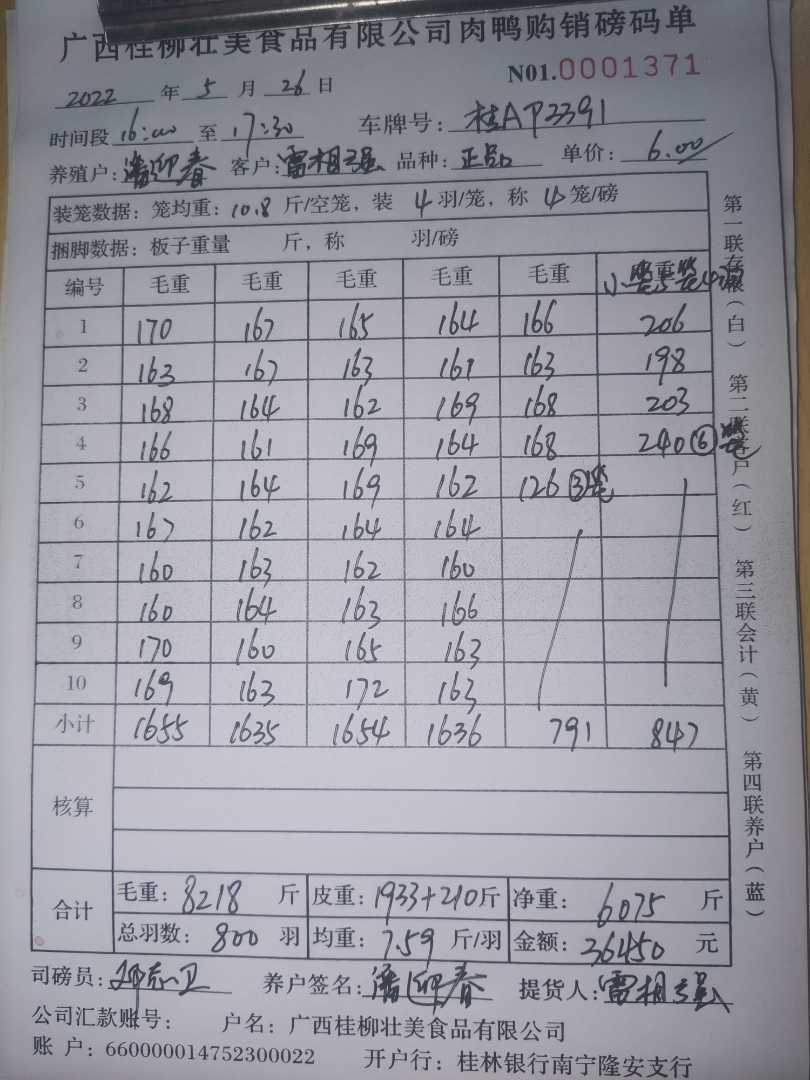 广西桂柳壮美食品有限公司肉鸭购销磅码单
2022 年 5 月 26 日 N01.0001371
时间段 16:00 至 17:30 车牌号: 桂AP3391
养殖户: 潘迎春 客户: 雷相强 品种: 正品 单价: 6.00
装笼数据: 笼均重: 10.8 斤/空笼, 装 4 羽/笼, 称 4 笼/磅
捆脚数据: 板子重量 斤, 称 羽/磅
编号 毛重 毛重 毛重 毛重 毛重 重
1 170 167 165 164 166 206
2 163 167 163 161 163 198
3 168 164 162 169 168 203
4 166 161 169 164 168 240⑥笼
5 162 164 169 162 126③笼
6 167 162 164 164
7 160 163 162 160
8 160 164 163 166
9 170 160 165 163
10 169 163 172 163
小计 1655 1635 1654 1636 791 847
核算
合计
毛重: 8218 斤 皮重: 1933+210斤 净重: 6075 斤
总羽数: 800 羽 均重: 7.59 斤/羽 金额: 36450 元
司磅员: 养户签名: 潘迎春 提货人: 雷相强
公司汇款账号: 户名: 广西桂柳壮美食品有限公司
账 户: 660000014752300022 开户行: 桂林银行南宁隆安支行
第一联存根(白) 第二联客户(红) 第三联会计(黄) 第四联养户(蓝)